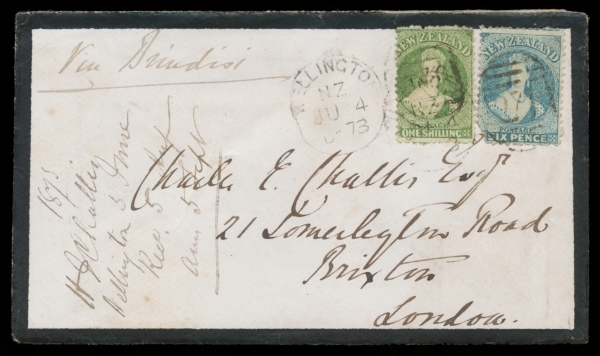 Via Brindisi
WELLINGTON
NZ
JU 4
73
NEW ZEALAND
POSTAGE
ONE SHILLING
NEW ZEALAND
POSTAGE
SIX PENCE
Charles E. Challis Esqr
21 Somerleyton Road
Brixton
London.
1873
Wellington 5 June
Rec. 5
Ans 5 Sept